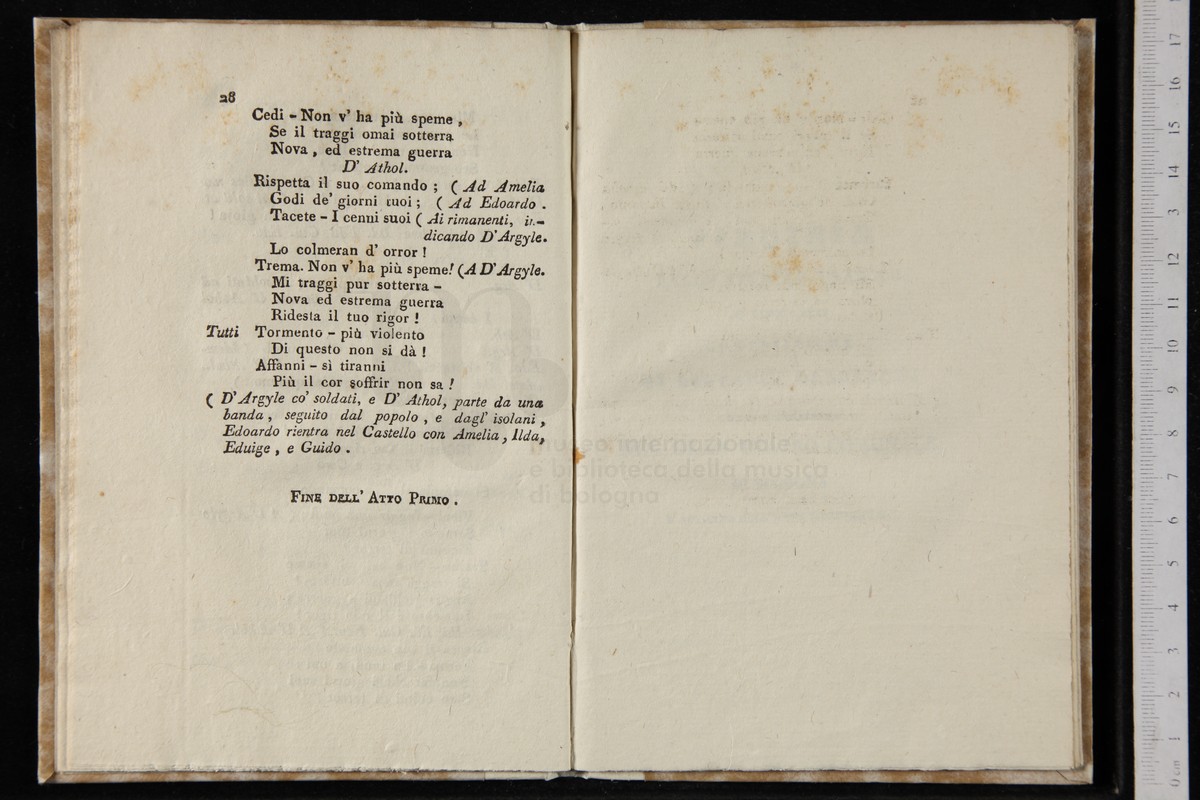 28
Cedi - Non v' ha più speme,
Se il traggi omai sotterra
Nova, ed estrema guerra
D' Athol.
Rispetta il suo comando; ( Ad Amelia
Godi de' giorni tuoi; ( Ad Edoardo.
Tacete - I cenni suoi ( Ai rimanenti, in-
dicando D'Argyle.
Lo colmeran d' orror!
Trema. Non v' ha più speme! (A D'Argyle.
Mi traggi pur sotterra -
Nova ed estrema guerra
Ridesta il tuo rigor!
Tutti Tormento - più violento
Di questo non si dà!
Affanni - sì tiranni
Più il cor soffrir non sa!
( D'Argyle co' soldati, e D' Athol, parte da una
banda, seguito dal popolo, e dagl' isolani,
Edoardo rientra nel Castello con Amelia, Ilda,
Eduige, e Guido.
FINE DELL' ATTO PRIMO.
museo internazionale
e biblioteca della musica
di bologna
0 cm 1 2 3 4 5 6 7 8 9 10 11 12 13 14 15 16 17